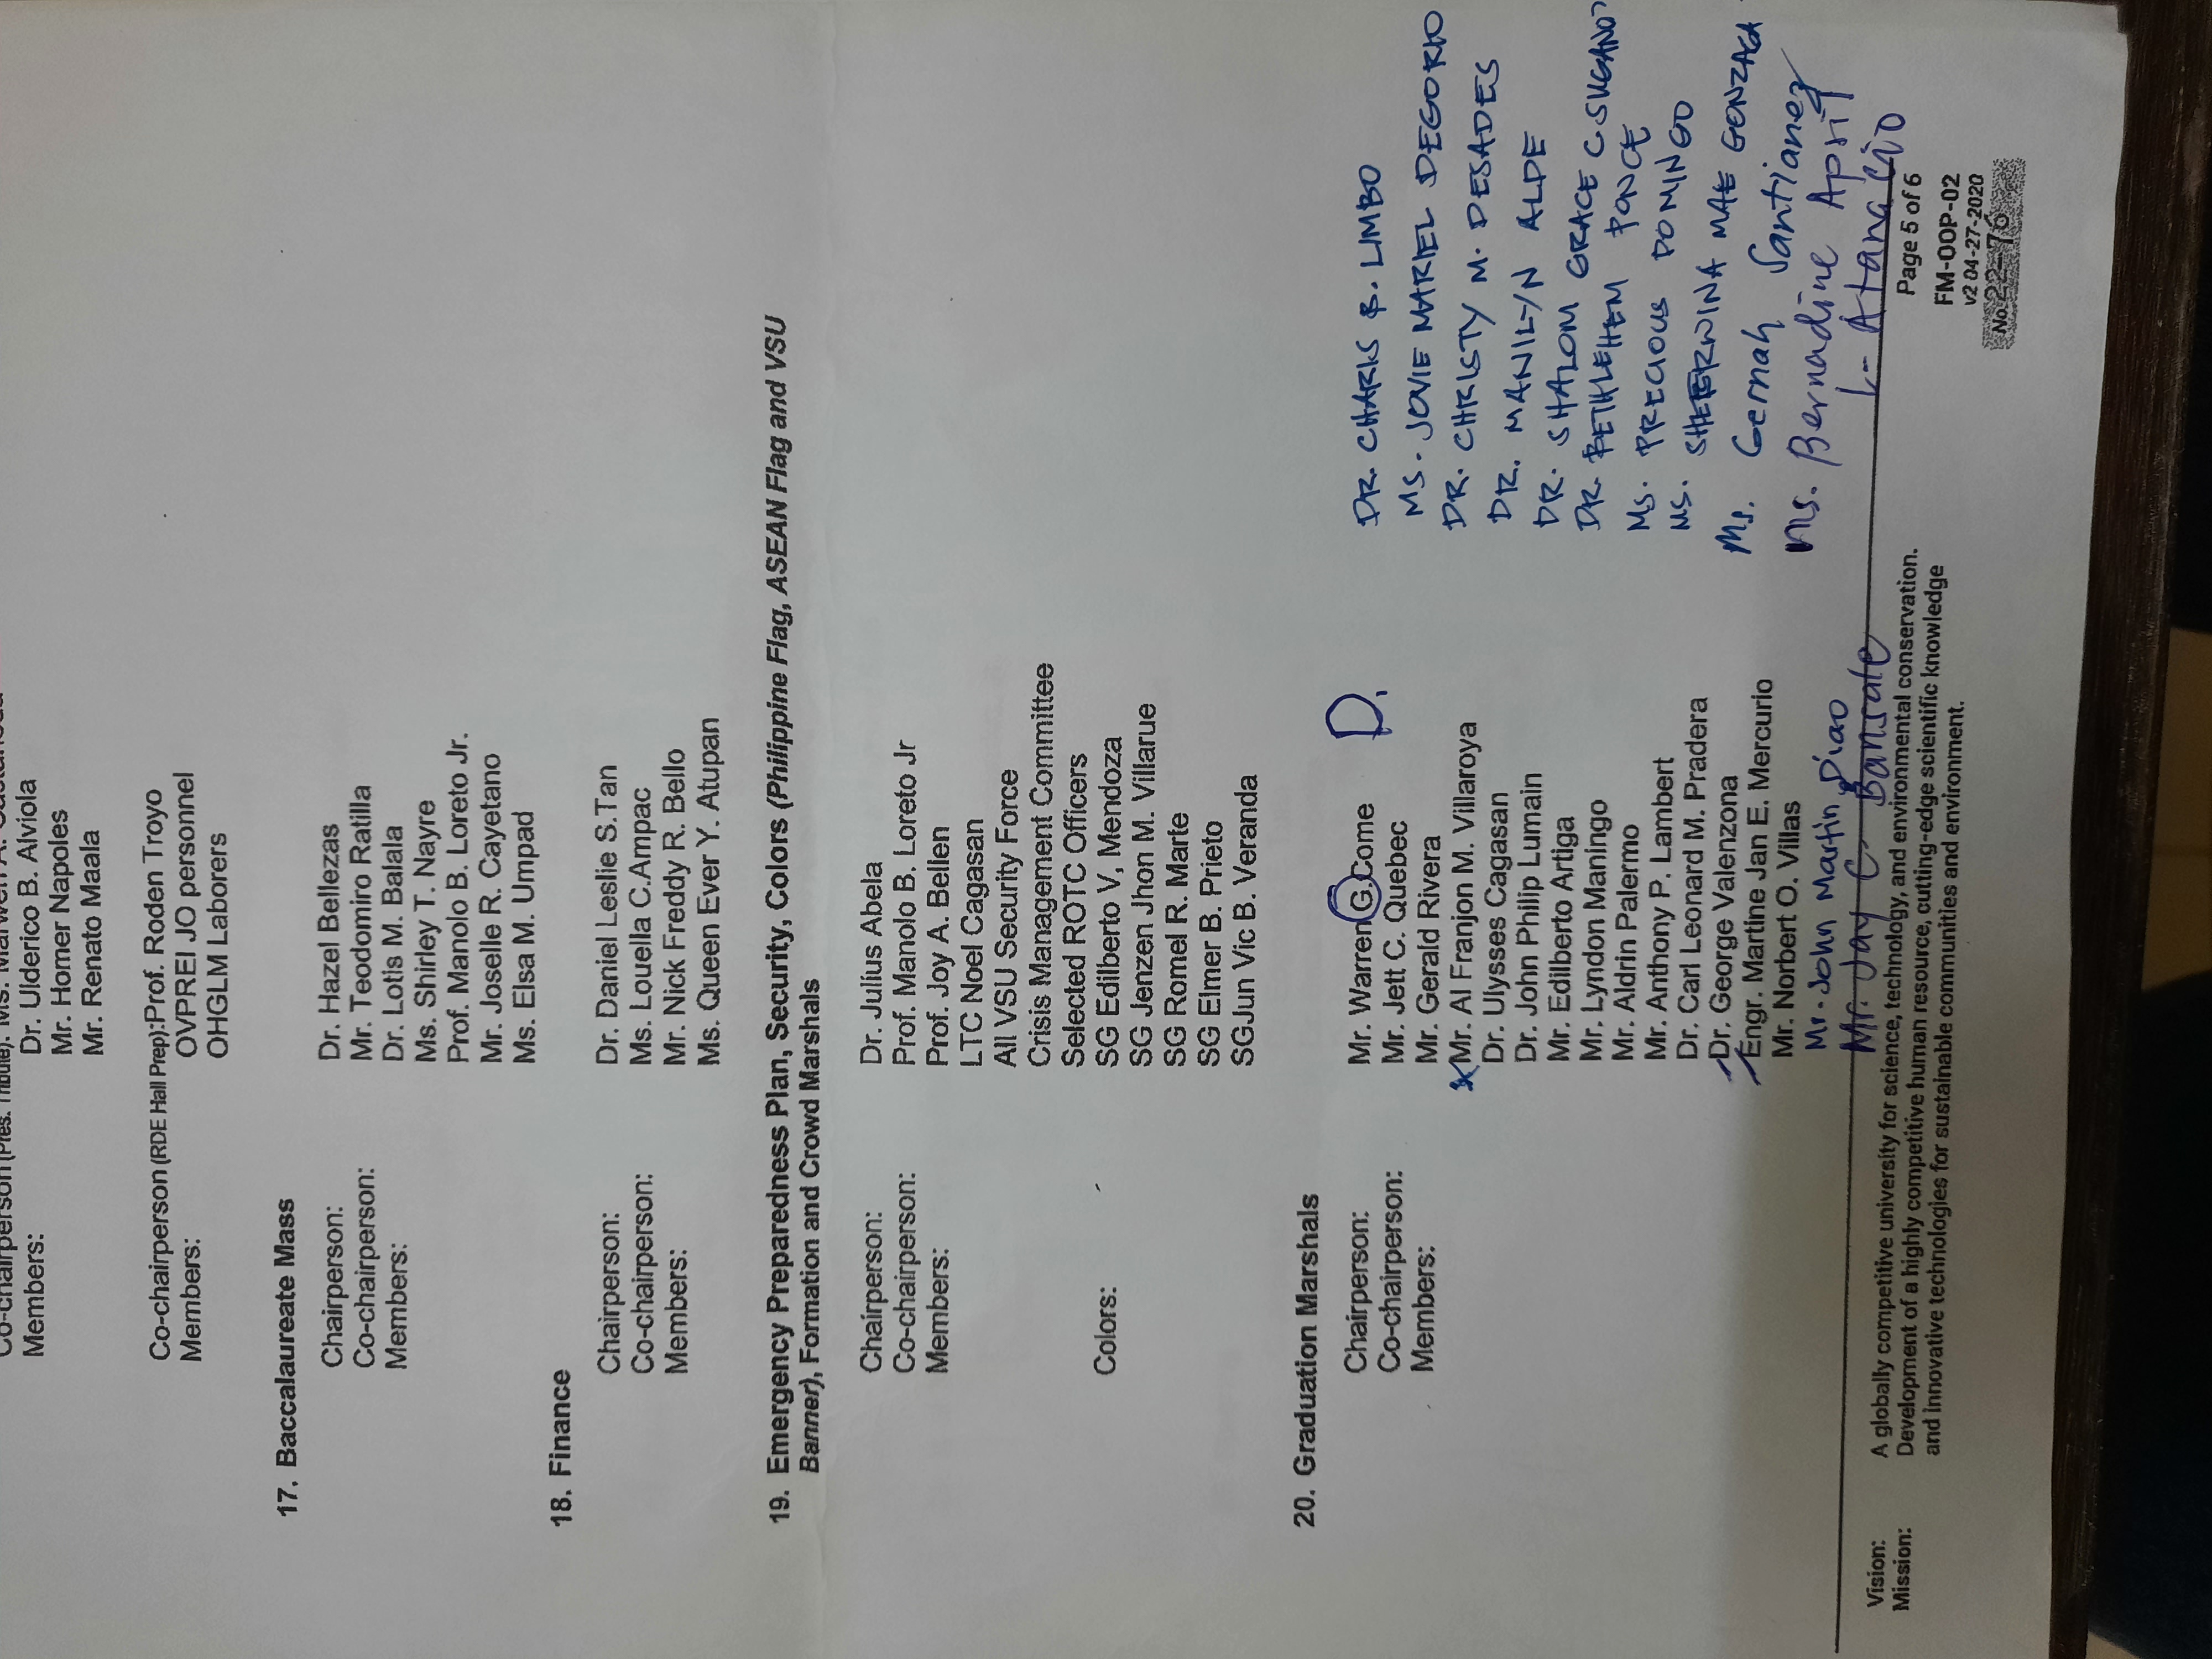 Co-chairperson (Pres. Tribute): Ms. Marwen A.
Members: Dr. Ulderico B. Alviola
Mr. Homer Napoles
Mr. Renato Maala
Co-chairperson (RDE Hall Prep):Prof. Roden Troyo
Members: OVPREI JO personnel
OHGLM Laborers
17. Baccalaureate Mass
Chairperson: Dr. Hazel Bellezas
Co-chairperson: Mr. Teodomiro Ratilla
Members: Dr. Lotis M. Balala
Ms. Shirley T. Nayre
Prof. Manolo B. Loreto Jr.
Mr. Joselle R. Cayetano
Ms. Elsa M. Umpad
18. Finance
Chairperson: Dr. Daniel Leslie S.Tan
Co-chairperson: Ms. Louella C.Ampac
Members: Mr. Nick Freddy R. Bello
Ms. Queen Ever Y. Atupan
19. Emergency Preparedness Plan, Security, Colors (Philippine Flag, ASEAN Flag and VSU
Banner), Formation and Crowd Marshals
Chairperson: Dr. Julius Abela
Co-chairperson: Prof. Manolo B. Loreto Jr
Members: Prof. Joy A. Bellen
LTC Noel Cagasan
All VSU Security Force
Crisis Management Committee
Selected ROTC Officers
Colors: SG Edilberto V, Mendoza
SG Jenzen Jhon M. Villarue
SG Romel R. Marte
SG Elmer B. Prieto
SGJun Vic B. Veranda
20. Graduation Marshals
Chairperson: Mr. Warren G.Come D.
Co-chairperson: Mr. Jett C. Quebec
Members: Mr. Gerald Rivera
Mr. Al Franjon M. Villaroya
Dr. Ulysses Cagasan
Dr. John Philip Lumain
Mr. Edilberto Artiga
Mr. Lyndon Maningo
Mr. Aldrin Palermo
Mr. Anthony P. Lambert
Dr. Carl Leonard M. Pradera
Dr. George Valenzona
Engr. Martine Jan E. Mercurio
Mr. Norbert O. Villas
Mr. John Martin Diao
Mr. Jay C. Bansale
DR. CHARIS B. LIMBO
MS. JOVIE MARIEL DEGORIO
DR. CHRISTY M. DESADES
DR. MANILYN ALDE
DR. SHALOM GRACE C. SUGANO
DR. BETHLEHEM PONCE
MS. PRECIOUS DOMINGO
MS. SHERWINA MAE GONZAGA
Ms. Gernah Santianez
Ms. Bernadine April
Atanacio
Vision: A globally competitive university for science, technology, and environmental conservation.
Mission: Development of a highly competitive human resource, cutting-edge scientific knowledge
and innovative technologies for sustainable communities and environment.
Page 5 of 6
FM-OOP-02
v2 04-27-2020
No. 22-76